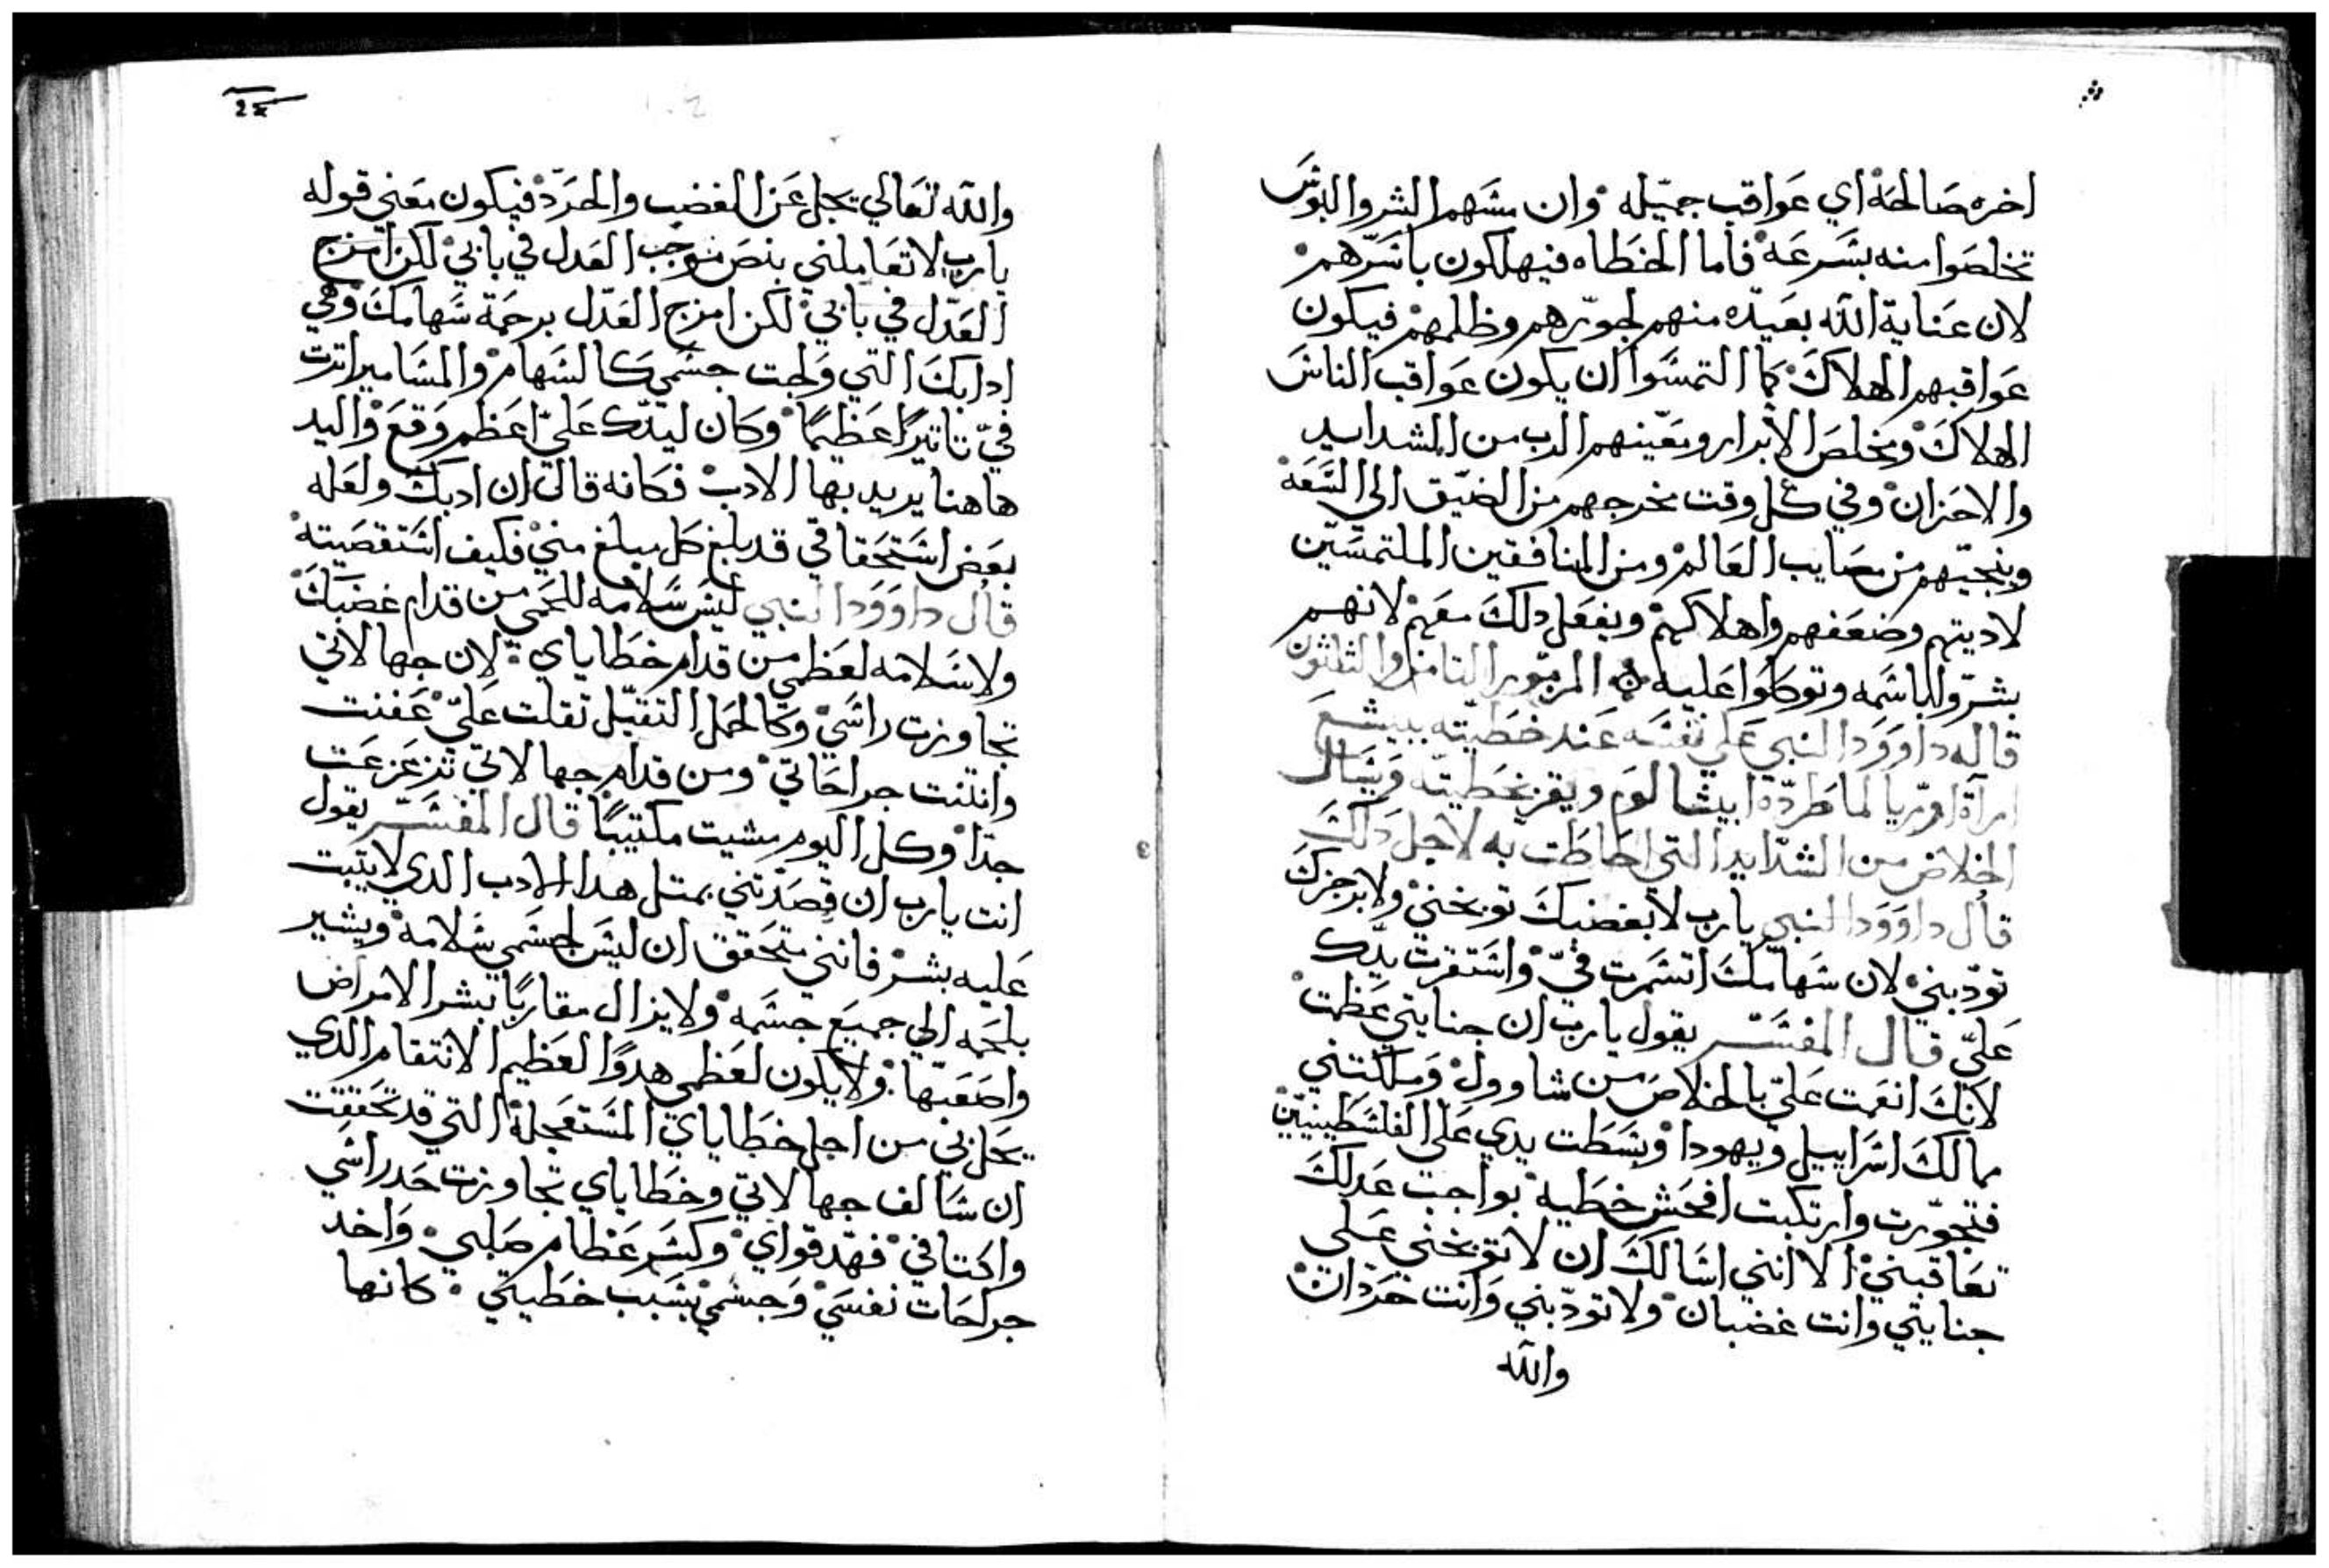 اخره صَالحَهْ اي عَواقب جميّله ْ وان مسَّهم الشر والبوسَ
تخلصَوا منه بسَرعَهْ فاما الخطَاه فيهلكون باسَرّهم ْ
لان عَناية اللّه بعَيدّه منهم لجورّهم وظلمهمْ فيكون
عَواقبهم الهلاكَ ْ كما التمسَوا ان يكون عَواقب الناسَ
الهلاكَ ْ ويخلصَ الأبرار ويعَينهم الرب من الشدايد
والاحَزان ْ وفي كل وقت يخرجهم من الضيّق الي السَّعَهْ
وينجيّهم من مصَايب العَالمْ ومن المنافقين الملتمسَّين
لاديتهم وضعَفهم واهلاكهمْ ويفعَل دلكَ معَهمْ لانهم
بشرّوا باسَمه وتوكلوُا عَليه ۞ المزمّور التامن والتلتون
قاله داوَوَد النبي عَلي نفسَه عَند خطَيتّه ببيشبعَ
امرآة اورّيا لما طَردّه ابيشالومَ ويقر بخطَيتهّ وَيسَال
الخلاصَ من الشدّايد التي احَاطَت به لاجل دَلكَ
قال داوَوَد النبي يارب لا بغضبكَ توبخنيْ ولا برجزكَ
تودّبنيْ لان سَهامّكَ اتسَمرت فيّ ْ واسَتقرت يدّك
عَليّ قال المفسَّر يقول يارب ان جنايتي عَظمت ْ
لانكَ انعَمت عَليّ بالخلاصَ من شاوولْ وَملكتني
ممالكَ اسَراييل ويهوداْ وبسَطَت يدي عَلي الفلسَطَينيّينْ
فتجوّرت وارتكبت افحَش خطَيهْ بواجب عَدلكَ
تعَاقبنيْ الا انني اسَالكَ ان لا توبخني عَلي
جنايتي وانت غضبانْ ولا تودّبني وَانت حَرَدّانْ
واللّه
واللّه تعَالي يجل عَن الغضب والحَرَدّْ فيكون معَني قوله
يارب لا تعَاملني بنصَ موجَب العَدل في بابيْ لكن امزج
العَدّل في بابيْ لكن امزج العَدّل برحَمة سَهامكَ وهي
ادابكَ التي وَلجت جسَمي كالسَهامْ والمسَامير اترت
فيّ تاتيرًا عَظيمًاْ وكان ليدّك عَليّ اعَظم وَقعَ ْ واليد
هاهنا يريد بها الادبْ فكانه قال ان ادبكَ ولعَله
بعَض اسَتحَقاقي قد بلغ كل مبلغ منيْ فكيف اسَتقصَيتهْ
قال داوَوَد النبي ليسَ سَلامه للحَمي من قدام غضبكَ
ولا سَلامه لعَظمي من قدام خطَاياي ْ لان جهالاتي
تجاوزت راسَيْ وكالحَمل التقيّل تقلت عَليّ ْ عَفنت
وانتنت جراحَاتيْ ومن قدام جهالاتي تزعَزعَت
جدًاْ وكل اليوم مشيت مكتيبًا قال المفسَّر يقول
انت يارب ان قصَدّتني بمتل هدا الادب الدي لا يتبت
عَليه بشرْ فانني متحَقق ان ليسَ لجسَمي سَلامهْ ويشير
بلحَمه الي جميعَ جسَمهْ ولا يزال مقاربًا لبشر الامراض
واصَعَبهاْ ولا يكون لعَظمي هدوًا لعَظيم الانتقام الدي
يحَل بي من اجل خطَاياي المسَتعَجلهْ التي قد تحَققت
ان سَالف جهالاتي وخطَاياي تجاوزت حَد راسَي
واكتافيْ فهدّ قوايْ وكسَر عَظام صَلبيْ وَاخد
جراحَات نفسَيْ وَجسَميْ بسَبب خطَيتي ْ كانها